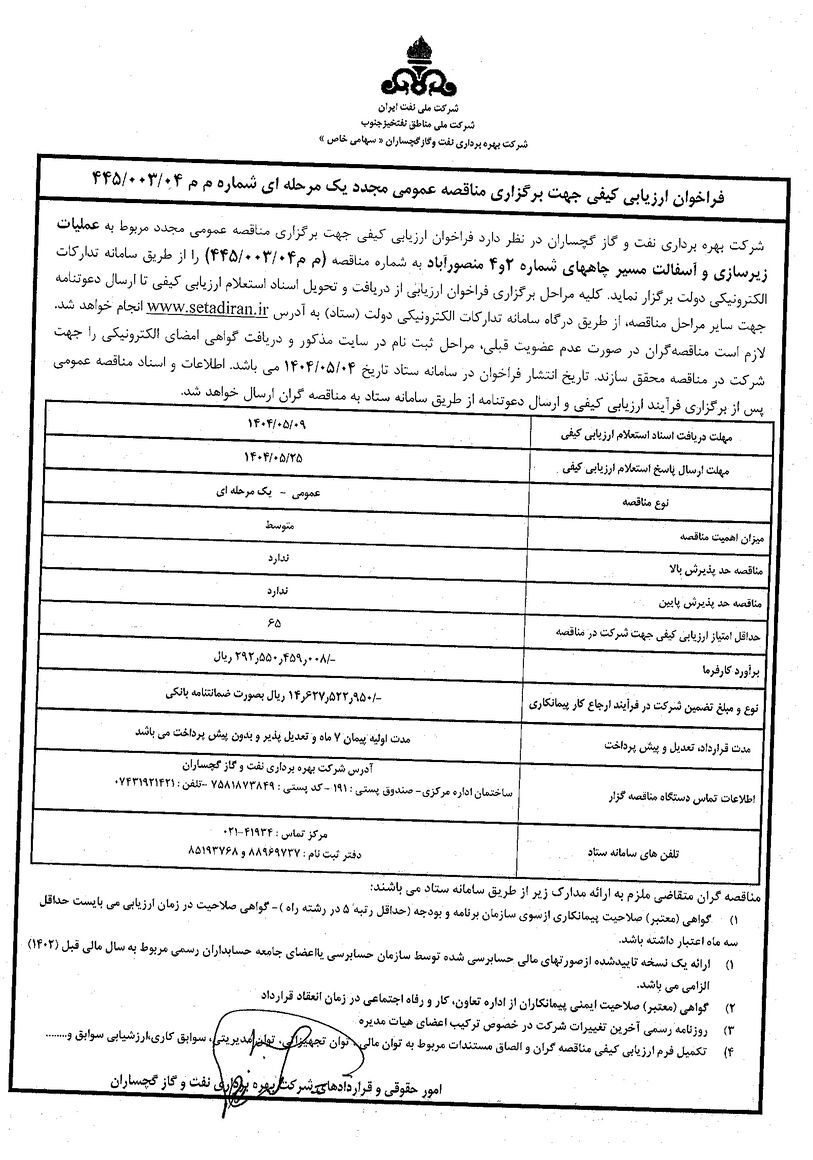 شرکت ملی نفت ایران
شرکت ملی مناطق نفتخیز جنوب
شرکت بهره برداری نفت و گاز گچساران « سهامی خاص »
فراخوان ارزیابی کیفی جهت برگزاری مناقصه عمومی مجدد یک مرحله ای شماره م م ۴۴۵/۰۰۳/۰۴
شرکت بهره برداری نفت و گاز گچساران در نظر دارد فراخوان ارزیابی کیفی جهت برگزاری مناقصه عمومی مجدد مربوط به عملیات
زیرسازی و آسفالت مسیر چاههای شماره ۲و۴ منصورآباد به شماره مناقصه (م م۴۴۵/۰۰۳/۰۴) را از طریق سامانه تدارکات
الکترونیکی دولت برگزار نماید. کلیه مراحل برگزاری فراخوان ارزیابی از دریافت و تحویل اسناد استعلام ارزیابی کیفی تا ارسال دعوتنامه
جهت سایر مراحل مناقصه، از طریق درگاه سامانه تدارکات الکترونیکی دولت (ستاد) به آدرس www.setadiran.ir انجام خواهد شد.
لازم است مناقصه‌گران در صورت عدم عضویت قبلی، مراحل ثبت نام در سایت مذکور و دریافت گواهی امضای الکترونیکی را جهت
شرکت در مناقصه محقق سازند. تاریخ انتشار فراخوان در سامانه ستاد تاریخ ۱۴۰۴/۰۵/۰۴ می باشد. اطلاعات و اسناد مناقصه عمومی
پس از برگزاری فرآیند ارزیابی کیفی و ارسال دعوتنامه از طریق سامانه ستاد به مناقصه گران ارسال خواهد شد.
مهلت دریافت اسناد استعلام ارزیابی کیفی ۱۴۰۴/۰۵/۰۹
مهلت ارسال پاسخ استعلام ارزیابی کیفی ۱۴۰۴/۰۵/۲۵
نوع مناقصه عمومی - یک مرحله ای
میزان اهمیت مناقصه متوسط
مناقصه حد پذیرش بالا ندارد
مناقصه حد پذیرش پایین ندارد
حداقل امتیاز ارزیابی کیفی جهت شرکت در مناقصه ۶۵
برآورد کارفرما ۲۹۲٫۵۵۰٫۴۵۹٫۰۰۸/- ریال
نوع و مبلغ تضمین شرکت در فرآیند ارجاع کار پیمانکاری ۱۴٫۶۲۷٫۵۲۲٫۹۵۰/- ریال بصورت ضمانتنامه بانکی
مدت قرارداد، تعدیل و پیش پرداخت مدت اولیه پیمان ۷ ماه و تعدیل پذیر و بدون پیش پرداخت می باشد
آدرس شرکت بهره برداری نفت و گاز گچساران
اطلاعات تماس دستگاه مناقصه گزار ساختمان اداره مرکزی- صندوق پستی : ۱۹۱ - کد پستی : ۷۵۸۱۸۷۳۸۴۹ -تلفن : ۰۷۴۳۱۹۲۱۴۲۱
مرکز تماس : ۴۱۹۳۴-۰۲۱
تلفن های سامانه ستاد دفتر ثبت نام : ۸۸۹۶۹۷۳۷ و ۸۵۱۹۳۷۶۸
مناقصه گران متقاضی ملزم به ارائه مدارک زیر از طریق سامانه ستاد می باشند:
۱) گواهی (معتبر) صلاحیت پیمانکاری ازسوی سازمان برنامه و بودجه (حداقل رتبه ۵ در رشته راه ) - گواهی صلاحیت در زمان ارزیابی می بایست حداقل
سه ماه اعتبار داشته باشد.
۱) ارائه یک نسخه تاییدشده ازصورتهای مالی حسابرسی شده توسط سازمان حسابرسی یااعضای جامعه حسابداران رسمی مربوط به سال مالی قبل (۱۴۰۲)
الزامی می باشد.
۲) گواهی (معتبر) صلاحیت ایمنی پیمانکاران از اداره تعاون، کار و رفاه اجتماعی در زمان انعقاد قرارداد
۳) روزنامه رسمی آخرین تغییرات شرکت در خصوص ترکیب اعضای هیات مدیره
۴) تکمیل فرم ارزیابی کیفی مناقصه گران و الصاق مستندات مربوط به توان مالی ، توان تجهیزاتی، توان مدیریتی، سوابق کاری،ارزشیابی سوابق و........
امور حقوقی و قراردادهای شرکت بهره برداری نفت و گاز گچساران